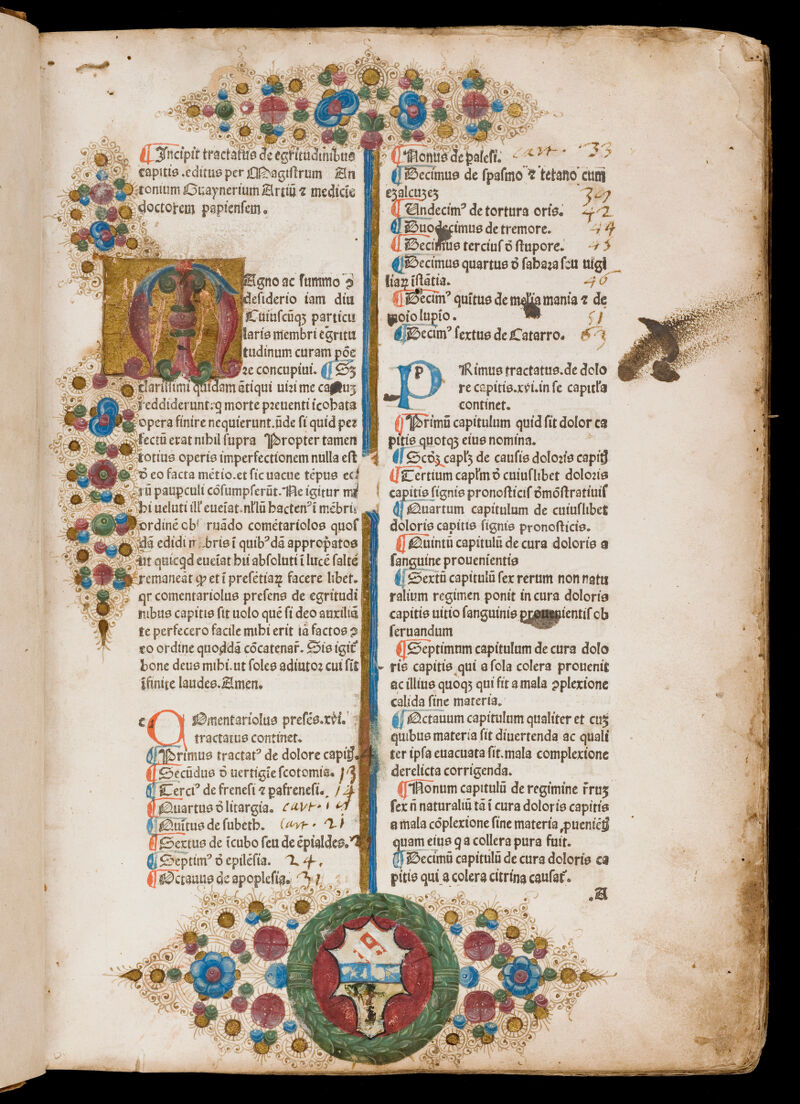 Incipit tractatus de egritudinibus
capitis .editus per Magistrum An
tonium Guaynerium Artiũ ⁊ medicie
doctorem papiensem.
MAgno ac summo ꝯ
desiderio iam diu
Cuiuscũqꝫ particu
laris membri eg̃ritu
tudinum curam põe
re concupiui. Sꝫ
clarissimi quidam ãtiqui uiri me
reddiderunt:q morte preuenti ĩcohata
opera finire nequierunt.ũde si quid per
fectũ erat nihil supra Propter tamen
totius operis imperfectionem nulla est
õ eo facta mẽtio.et sic uacue tẽpus
rũ paupculi cõsumpserũt.Ne igitur
hi ueluti ill' eueĩat.nl'lũ hactenꝰ ĩ mẽbri
ordinẽ ruãdo comẽtariolos quos
dã edidi bris ĩ quibꝰ dã appropatos
ut quicqd eueĩat hii absoluti ĩ lucẽ saltẽ
remaneãt ꝙ et ĩ presẽtiaꝝ facere libet.
qr comentariolus presens de egritudi
nibus capitis sit uolo quẽ si deo auxiliã
te perfecero facile mihi erit iã factos ꝯ
ro ordine quodda cõcatenar̃. Sis igit̃
bone deus mihi.ut soles adiutor cui sĩt
ĩfinite laudes.Amen.
c
COmentariolus presẽs.xvi.
tractatus continet.
Primus tractatꝰ de dolore capiꝭ.
Secũdus õ uertigĩe scotomia. 13
Terciꝰ de frenesi ⁊ pafrenesi. 14
Quartus õ litargia. cart. 19
Quĩtus de subeth. cart. 21
Sextus de ĩcubo seu de ẽpialdes.
Septimꝰ õ epilẽsia. 24.
Octauus de apoplesia. 31
Nonus de palesi. cart. 33
Decimus de spasmo ⁊ tetano cum
eꝫalcuꝫeꝫ 39
Undecimꝰ de tortura oris. 42
Duodecimus de tremore. 44
Decimus tercius õ stupore. 45
Decimus quartus õ sahara seu uigi
liaꝝ ĩstãtia. 46
Decimꝰ quĩtus de melia mania ⁊ de
moio lupio. 51
Decimꝰ sextus de Catarro. 63
p
PRimus tractatus.de dolo
re capitis.xvi.in se capitl'a
continet.
Primũ capitulum quid sit dolor ca
pitis quotqꝫ eius nomina.
Scõꝫ capl'ꝫ de causis doloris capiꝭ
Tertium capl'm õ cuiuslibet doloris
capitis signis pronosticis õmõstratiuis
Quartum capitulum de cuiuslibet
doloris capitis signis pronosticis.
Quintũ capitulũ de cura doloris a
sanguine prouenientis
Sextũ capitulũ sex rerum non natu
ralium regimen ponit in cura doloris
capitis uitio sanguinis prouenientis ob
seruandum
Septimum capitulum de cura dolo
ris capitis qui a sola colera prouenit
ac illius quoqꝫ qui fit a mala ꝯplexione
calida sine materia.
Octauum capitulum qualiter et cuꝫ
quibus materia sit diuertenda ac quali
ter ipsa euacuata sit.mala complexione
derelicta corrigenda.
Nonum capitulũ de regimine r̃ruꝫ
sex ñ naturaliũ tã ĩ cura doloris capitis
a mala cõplexione sine materia ꝓueniẽtꝭ
quam eius q a collera pura fuit.
Decimũ capitulũ de cura doloris ca
pitis qui a colera citrina causat̃.
.A